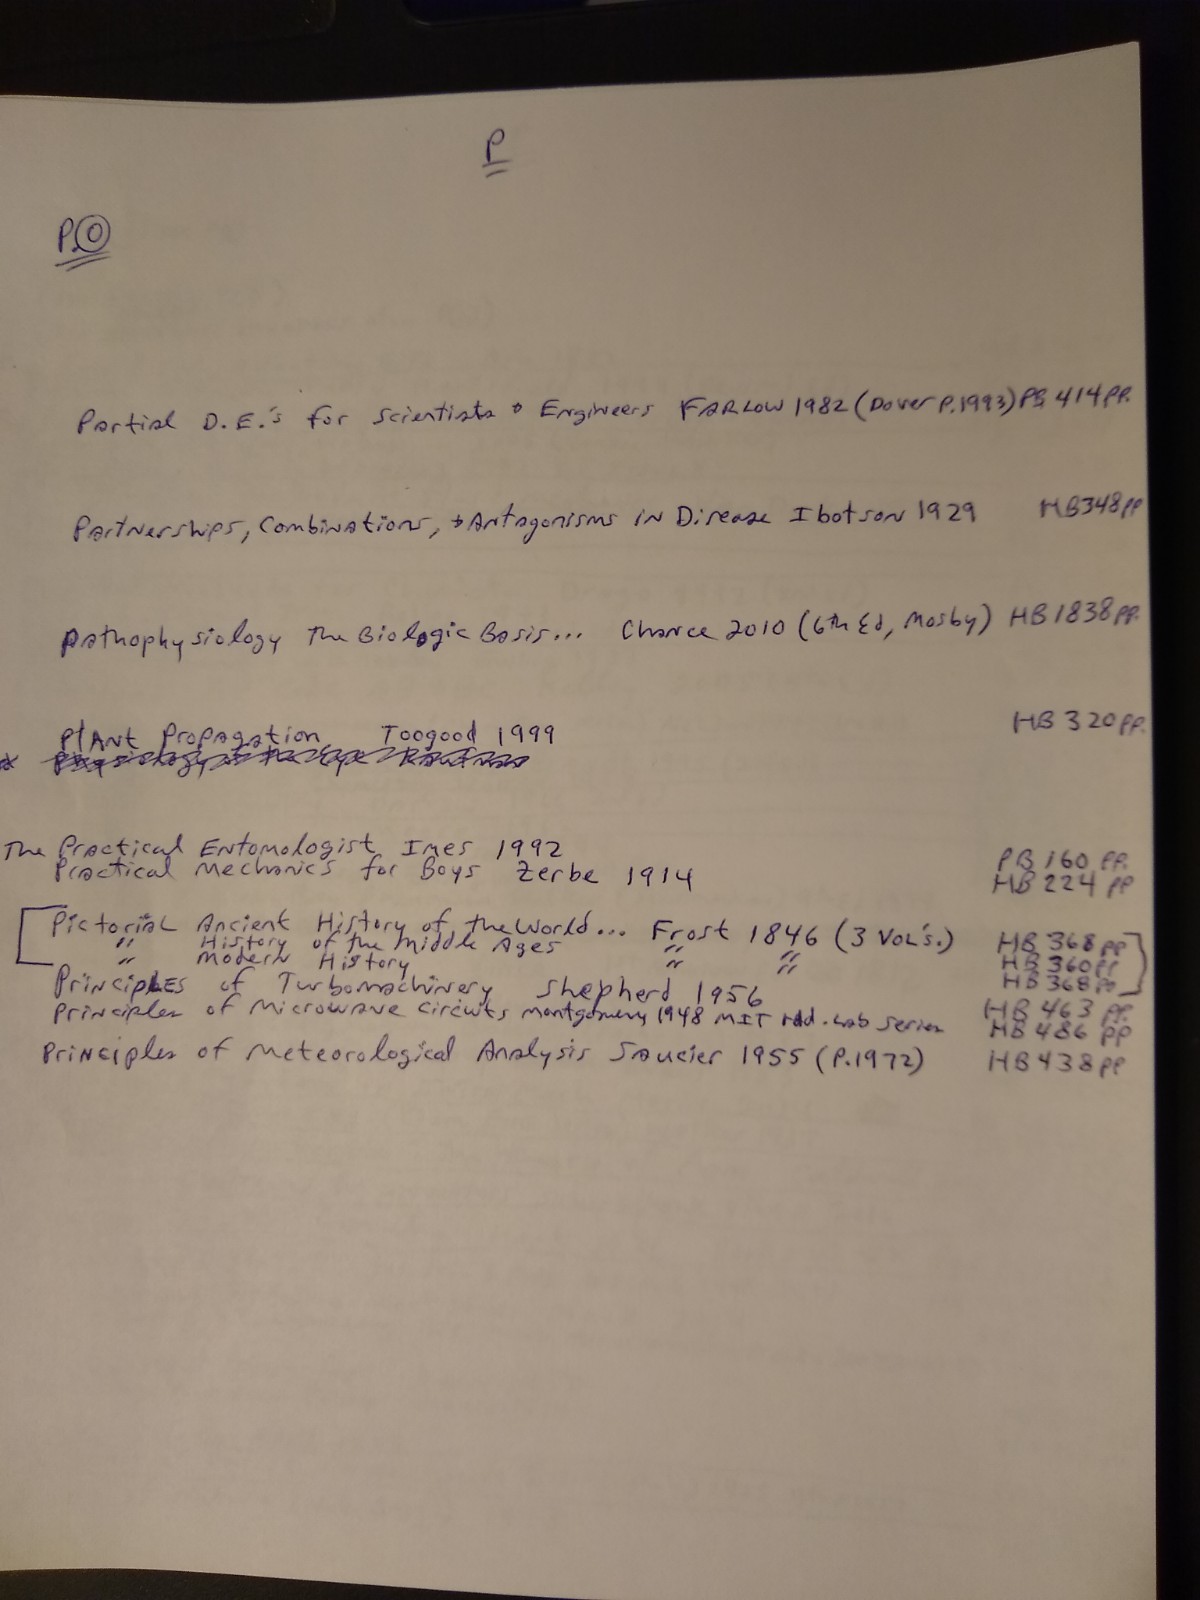 P
P.0
Partial D.E.'s for Scientists + Engineers FARLOW 1982 (Dover P.1993) PB 414 pp.
Partnerships, Combinations, + Antagonisms in Disease Ibotson 1929 HB 348 pp
Pathophysiology The Biologic Basis... Chance 2010 (6th Ed, Mosby) HB 1838 pp.
Plant Propagation Toogood 1999 HB 320 pp.
*
The Practical Entomologist Imes 1992 PB 160 pp.
Practical Mechanics for Boys Zerbe 1914 HB 224 pp
Pictorial Ancient History of the World... Frost 1846 (3 Vol's.) HB 368 pp
" History of the Middle Ages " " HB 360 pp
" Modern History " " HB 368 pp
Principles of Turbomachinery Shepherd 1956 HB 463 pp.
Principles of Microwave Circuits Montgomery 1948 MIT Rad. Lab Series HB 486 pp
Principles of Meteorological Analysis Saucier 1955 (P.1972) HB 438 pp